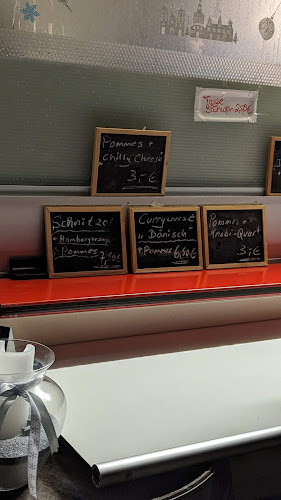 Tasse
2,50€
Pommes +
Chilly Cheese
3,-€
Schnitzel
+ Hamburgersauce
+ Pommes 7,50€
Currywurst
„Dänisch"
+ Pommes 6,50€
Pommes +
Knobi-Quark
3,-€